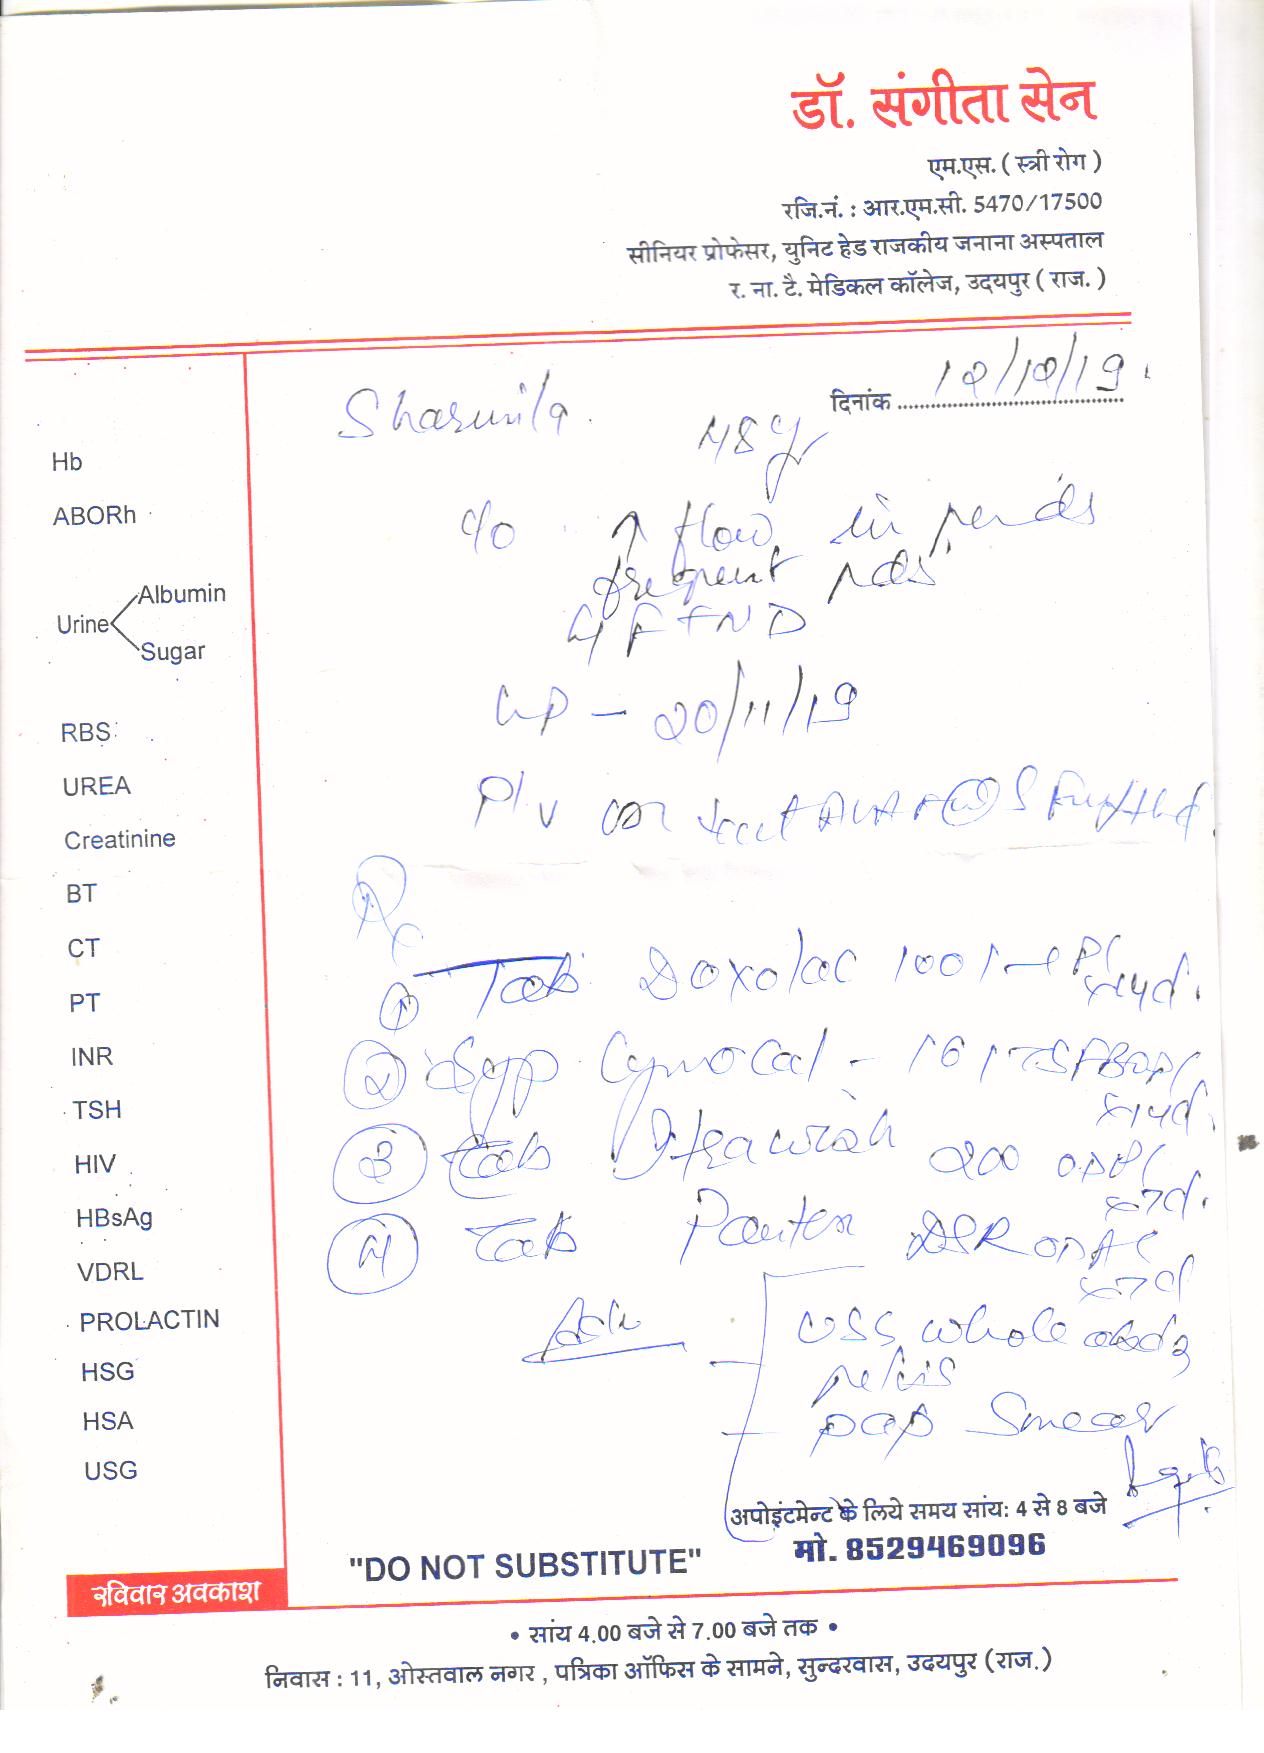 डॉ. संगीता सेन
एम.एस. ( स्त्री रोग )
रजि.नं. : आर.एम.सी. 5470/17500
सीनियर प्रोफेसर, युनिट हेड राजकीय जनाना अस्पताल
र. ना. टै. मेडिकल कॉलेज, उदयपुर ( राज. )
दिनांक 12/12/19
Sharmila 48y
Hb
ABORh
c/o ↑ flow in periods
frequent pds
Albumin
Urine
Sugar
4 FTND
LMP - 20/11/19
RBS
UREA
Creatinine
P/V
BT
CT
PT
INR
TSH
HIV
HBsAg
VDRL
PROLACTIN
HSG
HSA
USG
Rx
1 Tab. Doxolac 100 x 14d.
2 Syp Gynocal - x 14d.
3 Tab 200 OD PC x 7d.
4 Tab DSR OD AC x 7d
Adv
USG whole abd &
pelvis
pap smear
अपोइंटमेन्ट के लिये समय सांय: 4 से 8 बजे
मो. 8529469096
"DO NOT SUBSTITUTE"
रविवार अवकाश
• सांय 4.00 बजे से 7.00 बजे तक •
निवास : 11, ओस्तवाल नगर , पत्रिका ऑफिस के सामने, सुन्दरवास, उदयपुर (राज.)